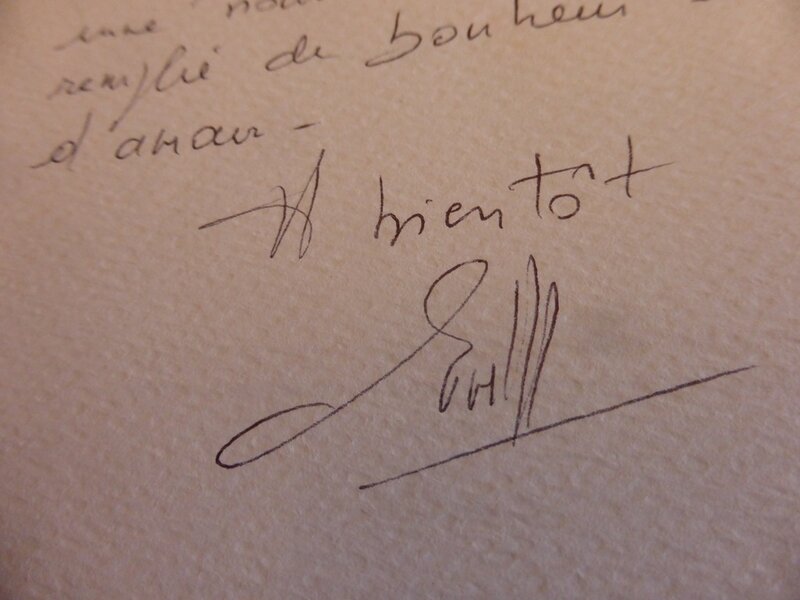 remplie de bonheur
d'amour -
A bientôt